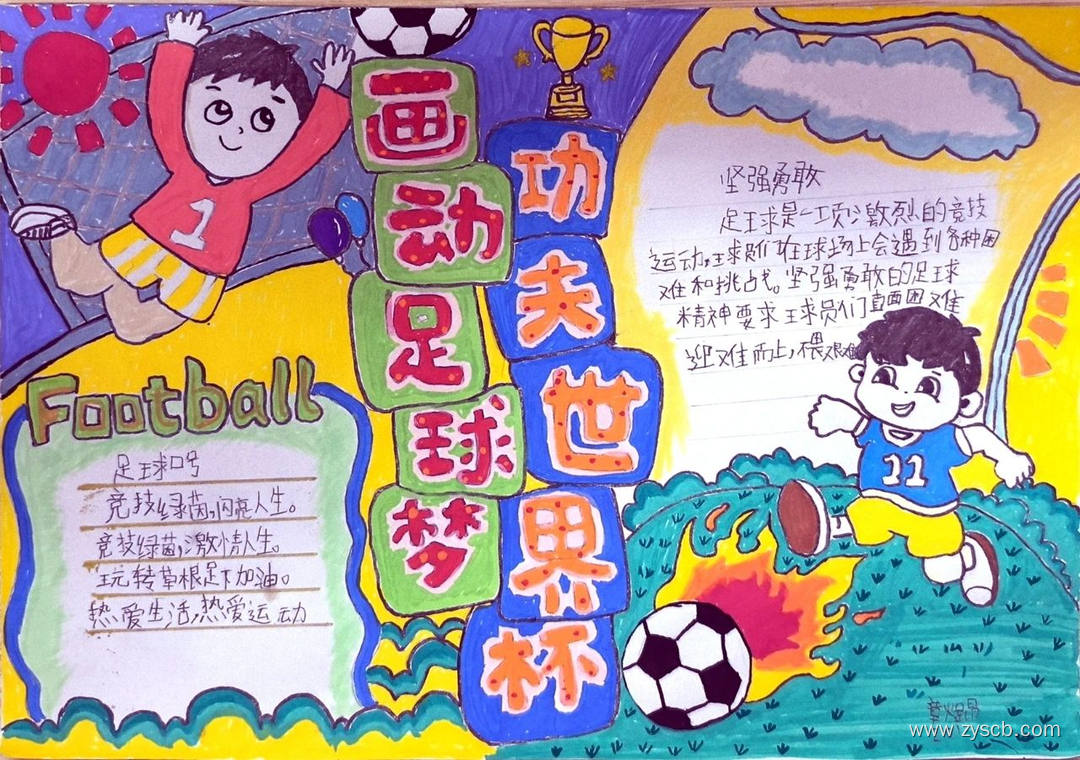 画动足球梦
功夫世界杯
1
Football
足球口号
竞技绿茵,闪亮人生。
竞技绿茵,激情人生。
玩转草根足下加油。
热爱生活,热爱运动
坚强勇敢
足球是一项激烈的竞技
运动,球员们在球场上会遇到各种困
难和挑战。坚强勇敢的足球
精神要求球员们直面困难
迎难而上,
11
www.zyscb.com